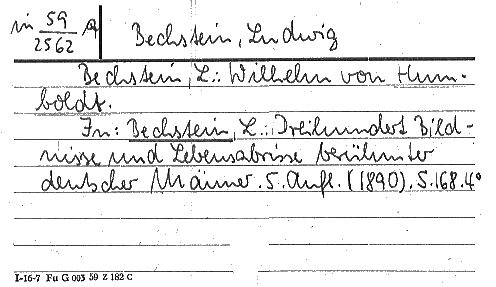 in 59/2562 a Bechstein, Ludwig
Bechstein, L.: Wilhelm von Hum-
boldt.
In: Bechstein, L.: Dreihundert Bild-
nisse und Lebensabrisse berühmter
deutscher Männer. 5. Aufl. (1890). S. 168. 4°
I-16-7 Fu G 003 59 Z 182 C